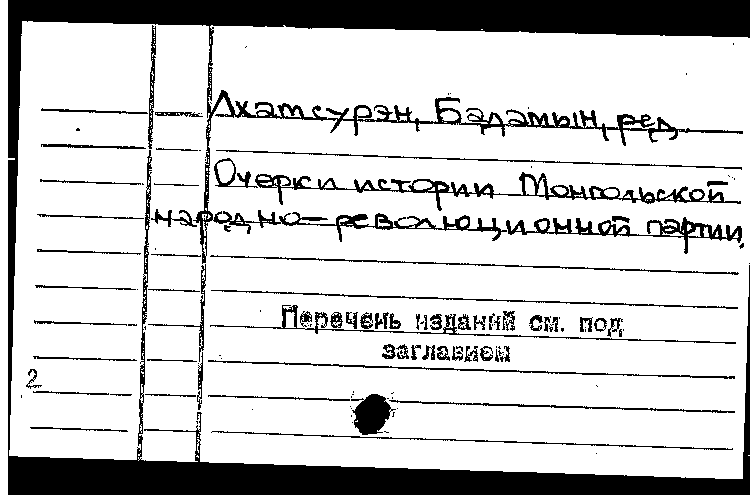 Лхамсурэн, Бадамын, ред.
Очерки истории Монгольской
народно-революционной партии.
Перечень изданий см. под
заглавием
2